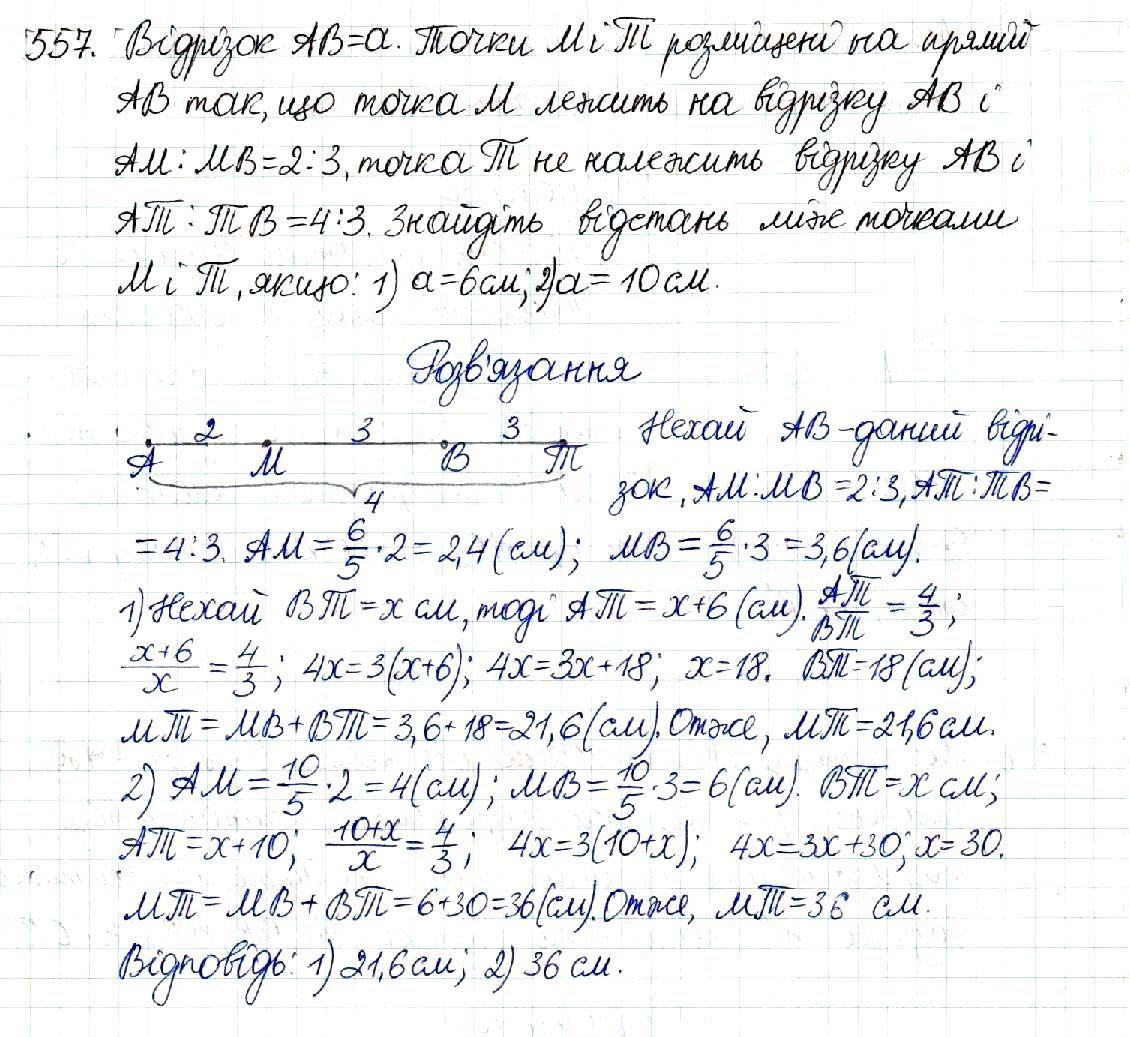 557. Відрізок AB=a. Точки M і T розміщені на прямій
AB так, що точка M лежить на відрізку AB і
AM:MB=2:3, точка T не належить відрізку AB і
AT:TB=4:3. Знайдіть відстань між точками
M і T, якщо: 1) a=6см; 2) a=10см.
Розв'язання
2 3 3
A M B T
4
Нехай AB-даний відрі-
зок, AM:MB=2:3, AT:TB=
=4:3. AM = 6/5 · 2 = 2,4 (см); MB = 6/5 · 3 = 3,6 (см).
1) Нехай BT = x см, тоді AT = x+6 (см). AT/BT = 4/3;
(x+6)/x = 4/3; 4x=3(x+6); 4x=3x+18; x=18. BT=18 (см);
MT = MB+BT = 3,6+18=21,6 (см). Отже, MT=21,6см.
2) AM = 10/5 · 2 = 4 (см); MB = 10/5 · 3 = 6 (см). BT = x см;
AT = x+10; (10+x)/x = 4/3; 4x=3(10+x); 4x=3x+30; x=30.
MT = MB + BT = 6+30=36 (см). Отже, MT=36 см.
Відповідь: 1) 21,6см; 2) 36 см.